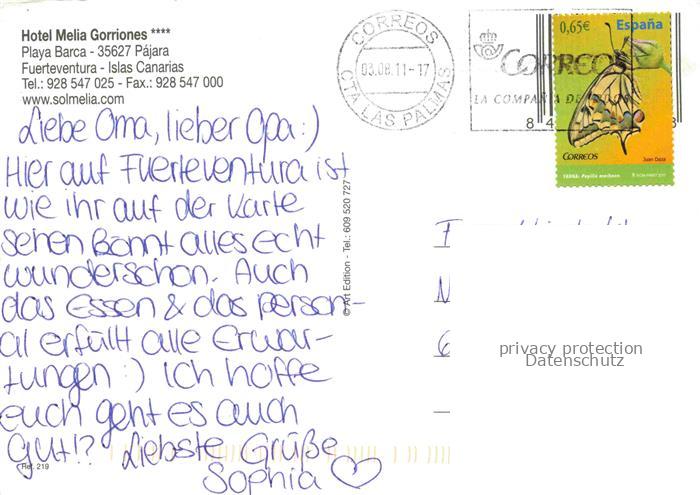 Hotel Melia Gorriones ****
Playa Barca - 35627 Pájara
Fuerteventura - Islas Canarias
Tel.: 928 547 025 - Fax.: 928 547 000
www.solmelia.com
Liebe Oma, lieber Opa :)
Hier auf Fuerteventura ist
wie ihr auf der Karte
sehen könnt alles echt
wunderschön. Auch
das Essen & das Person-
al erfüllt alle Erwar-
tungen :) Ich hoffe
euch geht es auch
gut!? Liebste Grüße
Sophia ♡
Ref. 219
© Art Edition - Tel.: 609 520 727
CORREOS
03.08.11-17
CTA LAS PALMAS
CORREOS
LA COMPAÑIA DE
8 4
8
0,65€ España
Juan Daza
CORREOS
FAUNA: Papilio machaon
privacy protection
Datenschutz